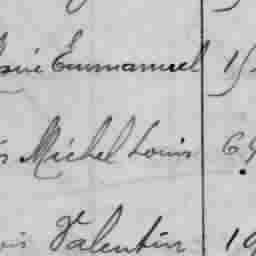 Emmanuel 15
Michel Louis 69
Valentin 19